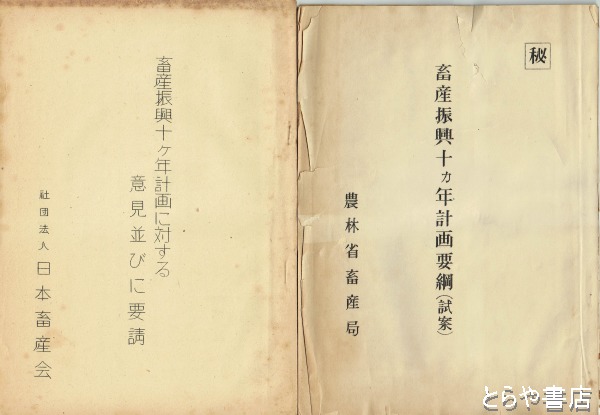 秘
畜産振興十カ年計画要綱(試案)
農林省畜産局
畜産振興十ヶ年計画に対する
意見並びに要請
社団法人 日本畜産会
とらや書店